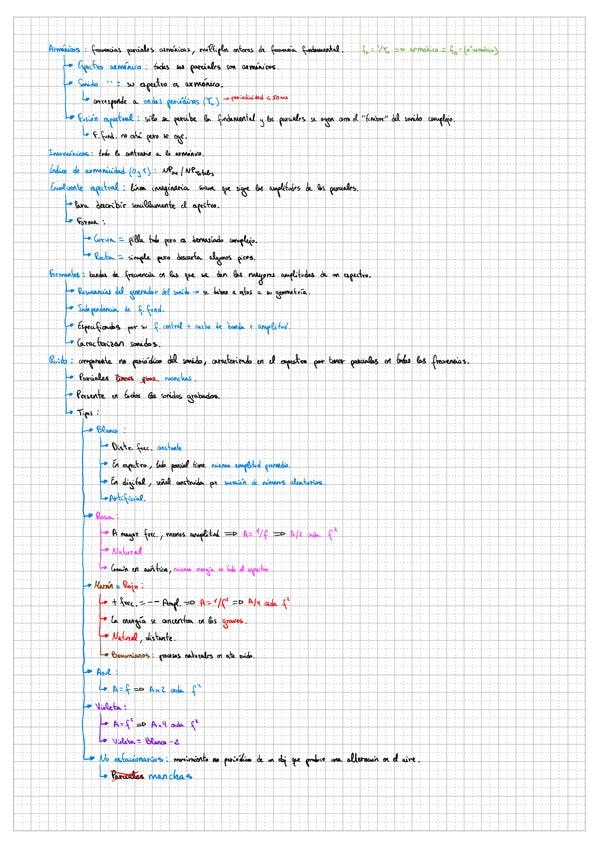 Armónicos: frecuencias parciales armónicas, múltiplos enteros de frecuencia fundamental. f₀ = 1/T₀ => armónico = f₀ · (nº armónico)
Espectro armónico: todos sus parciales son armónicos.
Sonido " : su espectro es armónico.
corresponde a ondas periódicas (T₀) → periodicidad < 50ms
Fusión espectral: sólo se percibe la fundamental y los parciales se oyen como el "timbre" del sonido complejo.
F. fund. no está pero se oye.
Inarmónicos: todo lo contrario a lo armónico.
Índice de armonicidad (0 y 1): / NPtotales
Envolvente espectral: línea imaginaria suave que sigue las amplitudes de los parciales.
Para describir sencillamente el espectro.
Forma:
Curva = pilla todo pero es demasiado complejo.
Recta = simple pero descarta algunos picos.
Formantes: bandas de frecuencia en las que se dan las mayores amplitudes de un espectro.
Resonancias del generador del sonido → se deben a estos a su geometría.
Independencia de f. fund.
Especificados por su f. central + ancho de banda + amplitud.
Caracterizan sonidos.
Ruido: componente no periódico del sonido, caracterizado en el espectro por tener parciales en todas las frecuencias.
Parciales manchas.
Presente en todos los sonidos grabados.
Tipos:
Blanco:
Distr. frec. constante
En espectro, todo parcial tiene misma amplitud promedio.
En digital, señal construida por sucesión de números aleatorios.
Artificial.
Rosa:
A mayor frec., menos amplitud => A = 1/f => A/2 cada f²
Natural
Común en acústica, misma energía en todo el espectro
Marrón o Rojo:
+ frec. = -- Ampl. => A = 1/f² => A/4 cada f²
La energía se concentra en los graves.
Natural, distante.
Brownianos: procesos naturales en este ruido.
Azul:
A = f => A×2 cada f²
Violeta:
A = f² => A×4 cada f²
Violeta = Blanco - 2
No estacionarios: movimiento no periódico de un obj que produce una alteración en el aire.
Parciales manchas